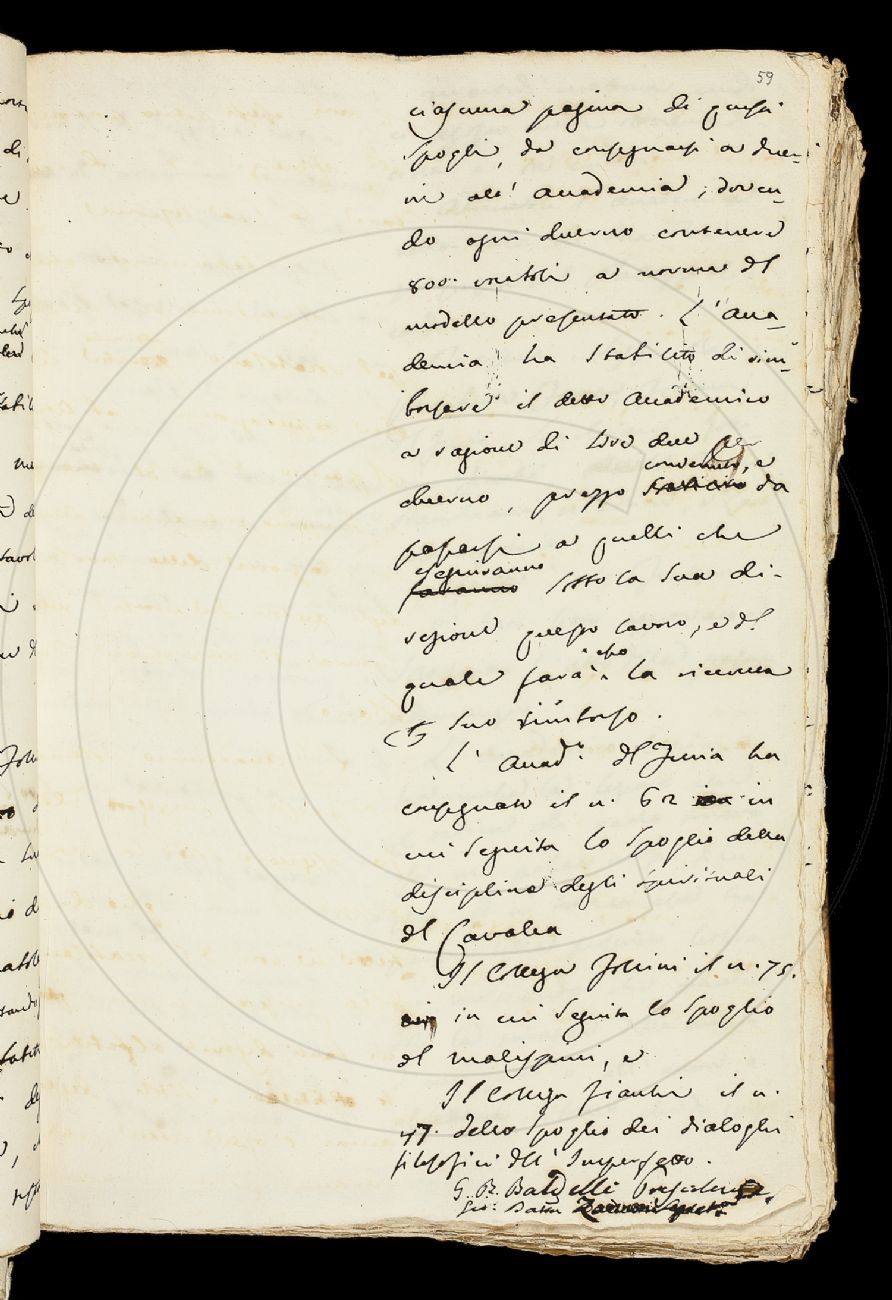 59
ciascuna pagina di questi
spogli, da consegnarsi a duer-
ni all' Accademia, doven-
do ogni duerno contenere
800. vocaboli a norma del
modello presentato. L'Acca-
demia ha stabilito di rim-
borsare il detto Accademico
a ragione di lire due per
convenuto, e
duerno, prezzo da
pagarsi a quelli che
eseguiranno
faranno sotto la sua di-
rezione questo lavoro, e del
esso
quale farà la ricevuta
suo rimborso.
L' Accad.o del Furia ha
consegnato il n. 62 in
cui seguita lo spoglio della
disciplina degli spirituali
del Cavalca
Il Collega Follini il n. 75.
in cui seguita lo spoglio
del malispini, e
Il Collega fiacchi il n.
47. dello spoglio dei dialoghi
filosofici dell' Imperfetto.
G. B. Baldelli Presidente
Zannoni Segret.o